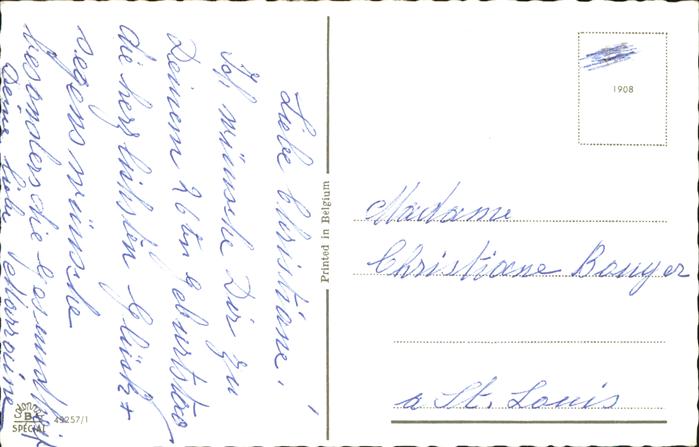 Liebe Christiane!
Ich wünsche Dir zu
Deinem 26ten Geburtstag
die herzlichsten Glück +
segenswünsche
besonders die Gesundheit
Deine liebe Marraine
Printed in Belgium
1908
Madame
Christiane Bouyer
à St. Louis
B
SPÉCIAL
49257/1